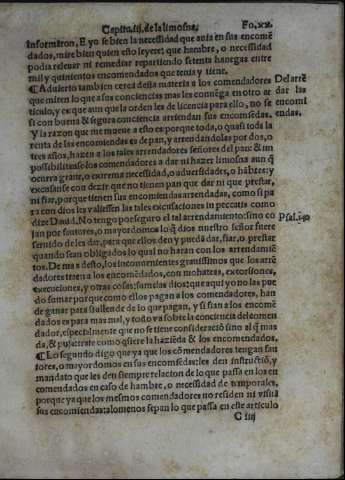 Capitulo iij. de la limosna. Fo. xx.
informaron. E yo se bien la necessidad que auia en sus encomẽ
dados, mire bien quien esto leyere: que hambre, o necessidad
podia releuar ni remediar repartiendo setenta hanegas entre
mil y quinientos encomendados que tenia y tiene.
¶ Aduierto tambien cerca desta materia a los comendadores
que miren lo que a sus conciencias mas les conuẽga en otro ar
ticulo, y es que aun que la orden les de licencia para ello, no se
si con buena & segura conciencia arriendan sus encomiẽdas.
Y la razon que me mueue a esto es: porque toda, o quasi toda la
renta de las encomiendas es de pan, y arrendandolas por dos, o
tres años, hazen a los tales arrendadores señores del pan: & im
possibilitanse los comendadores a dar ni hazer limosna aun q̃
ocurra grãde, o extrema necessidad, o aduersidades, o hãbres: y
excusanse con dezir que no tienen pan que dar ni que prestar,
ni fiar, porque tienen sus encomiendas arrendadas, como si pa
ra con dios les valiessen las tales excusaciones in peccatis como
dize Dauid. No tengo por seguro el tal arrendamiento: sino co
jan por fautores, o mayordomos lo q̃ dios nuestro señor fuere
seruido de les dar, para que ellos den y puedã dar, fiar, o prestar
quando son obligados lo qual no haran con los arrendamiẽ
tos. De mas desto, los inconuenientes grauissimos que los arrẽ
dadores traen a los encomẽdados, con mohatras, extorsiones,
execuciones, y otras cosas: sabelas dios: que aqui yo no las pue
do sumar porque como ellos pagan a los comendadores, han
de ganar para si allende de lo que pagan, y si fian a los encomẽ
dados es para mas mal, y todo va sobre la conciencia del comen
dador, especialmente que no se tiene consideraciõ sino el q̃ mas
da, & puje: trate como q̃siere la haziẽda & los encomendados.
¶ Lo segundo digo que ya que los comendadores tengan fau
tores, o mayordomos en sus encomiẽdas: les den instructiõ, y
mandato que les den siempre relacion de lo que passa en los en
comendados en caso de hambre, o necessidad de temporales,
porque ya que los mesmos comendadores no residen ni visitã
sus encomiendas: alomenos sepan lo que passa en este articulo
C iiij
Del arrẽ
dar las
encomi
endas.
Psal. 140